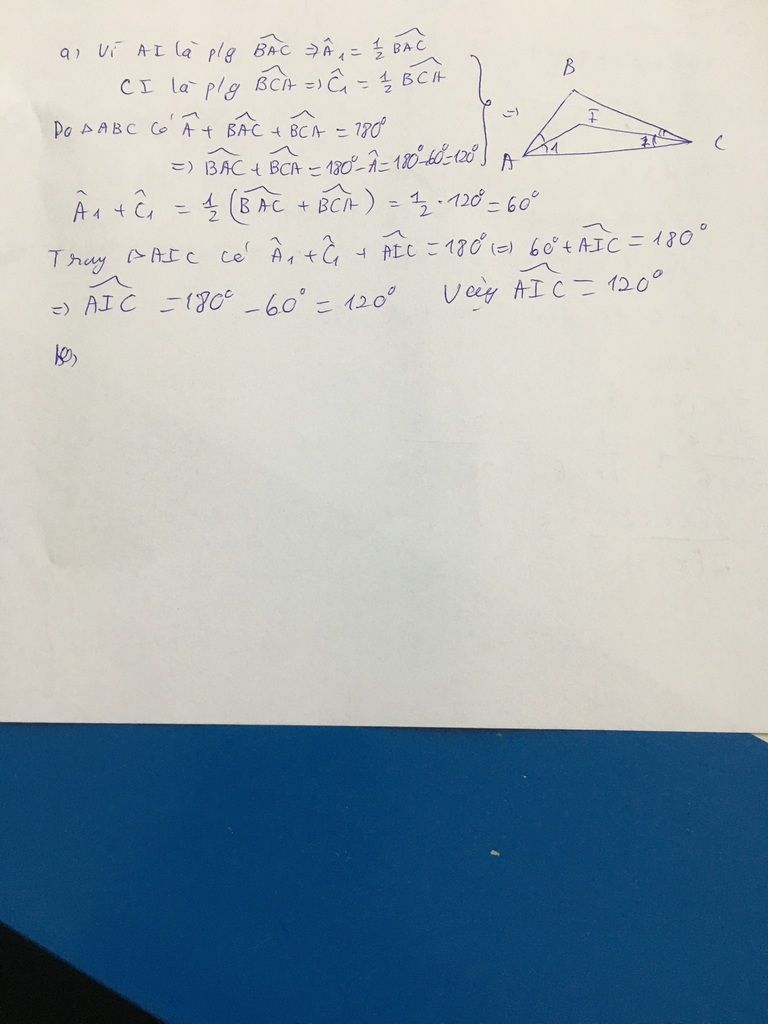 a) Vì AI là p/g \widehat{BAC} => Â₁ = 1/2 \widehat{BAC}
CI là p/g \widehat{BCA} => Ĉ₁ = 1/2 \widehat{BCA}
Do △ABC có Â + \widehat{BAC} + \widehat{BCA} = 180°
=> \widehat{BAC} + \widehat{BCA} = 180° - Â = 180° - 60° = 120°
=>
Â₁ + Ĉ₁ = 1/2 (\widehat{BAC} + \widehat{BCA}) = 1/2 · 120° = 60°
△AIC có Â₁ + Ĉ₁ + \widehat{AIC} = 180° (=) 60° + \widehat{AIC} = 180°
=> \widehat{AIC} = 180° - 60° = 120° Vậy \widehat{AIC} = 120°
B
I
A
1
1
C